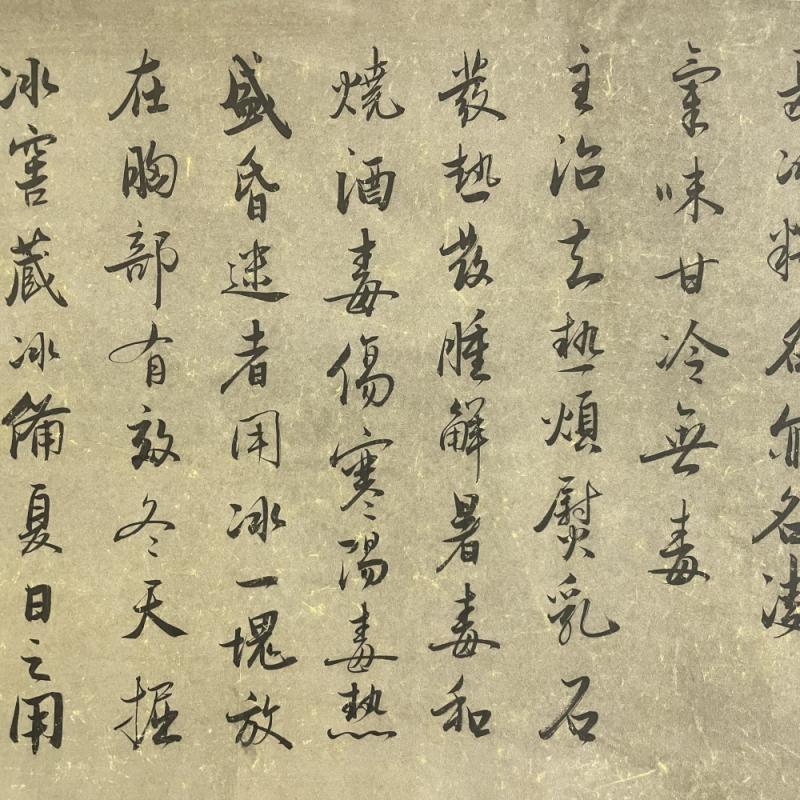 冰料名亦名凌
氣味甘冷無毒
主治去熱煩熨乳石
發熱散腫解暑毒和
燒酒毒傷寒陽毒熱
盛昏迷者用冰一塊放
在胸部有效冬天掘
冰窖藏冰備夏日之用